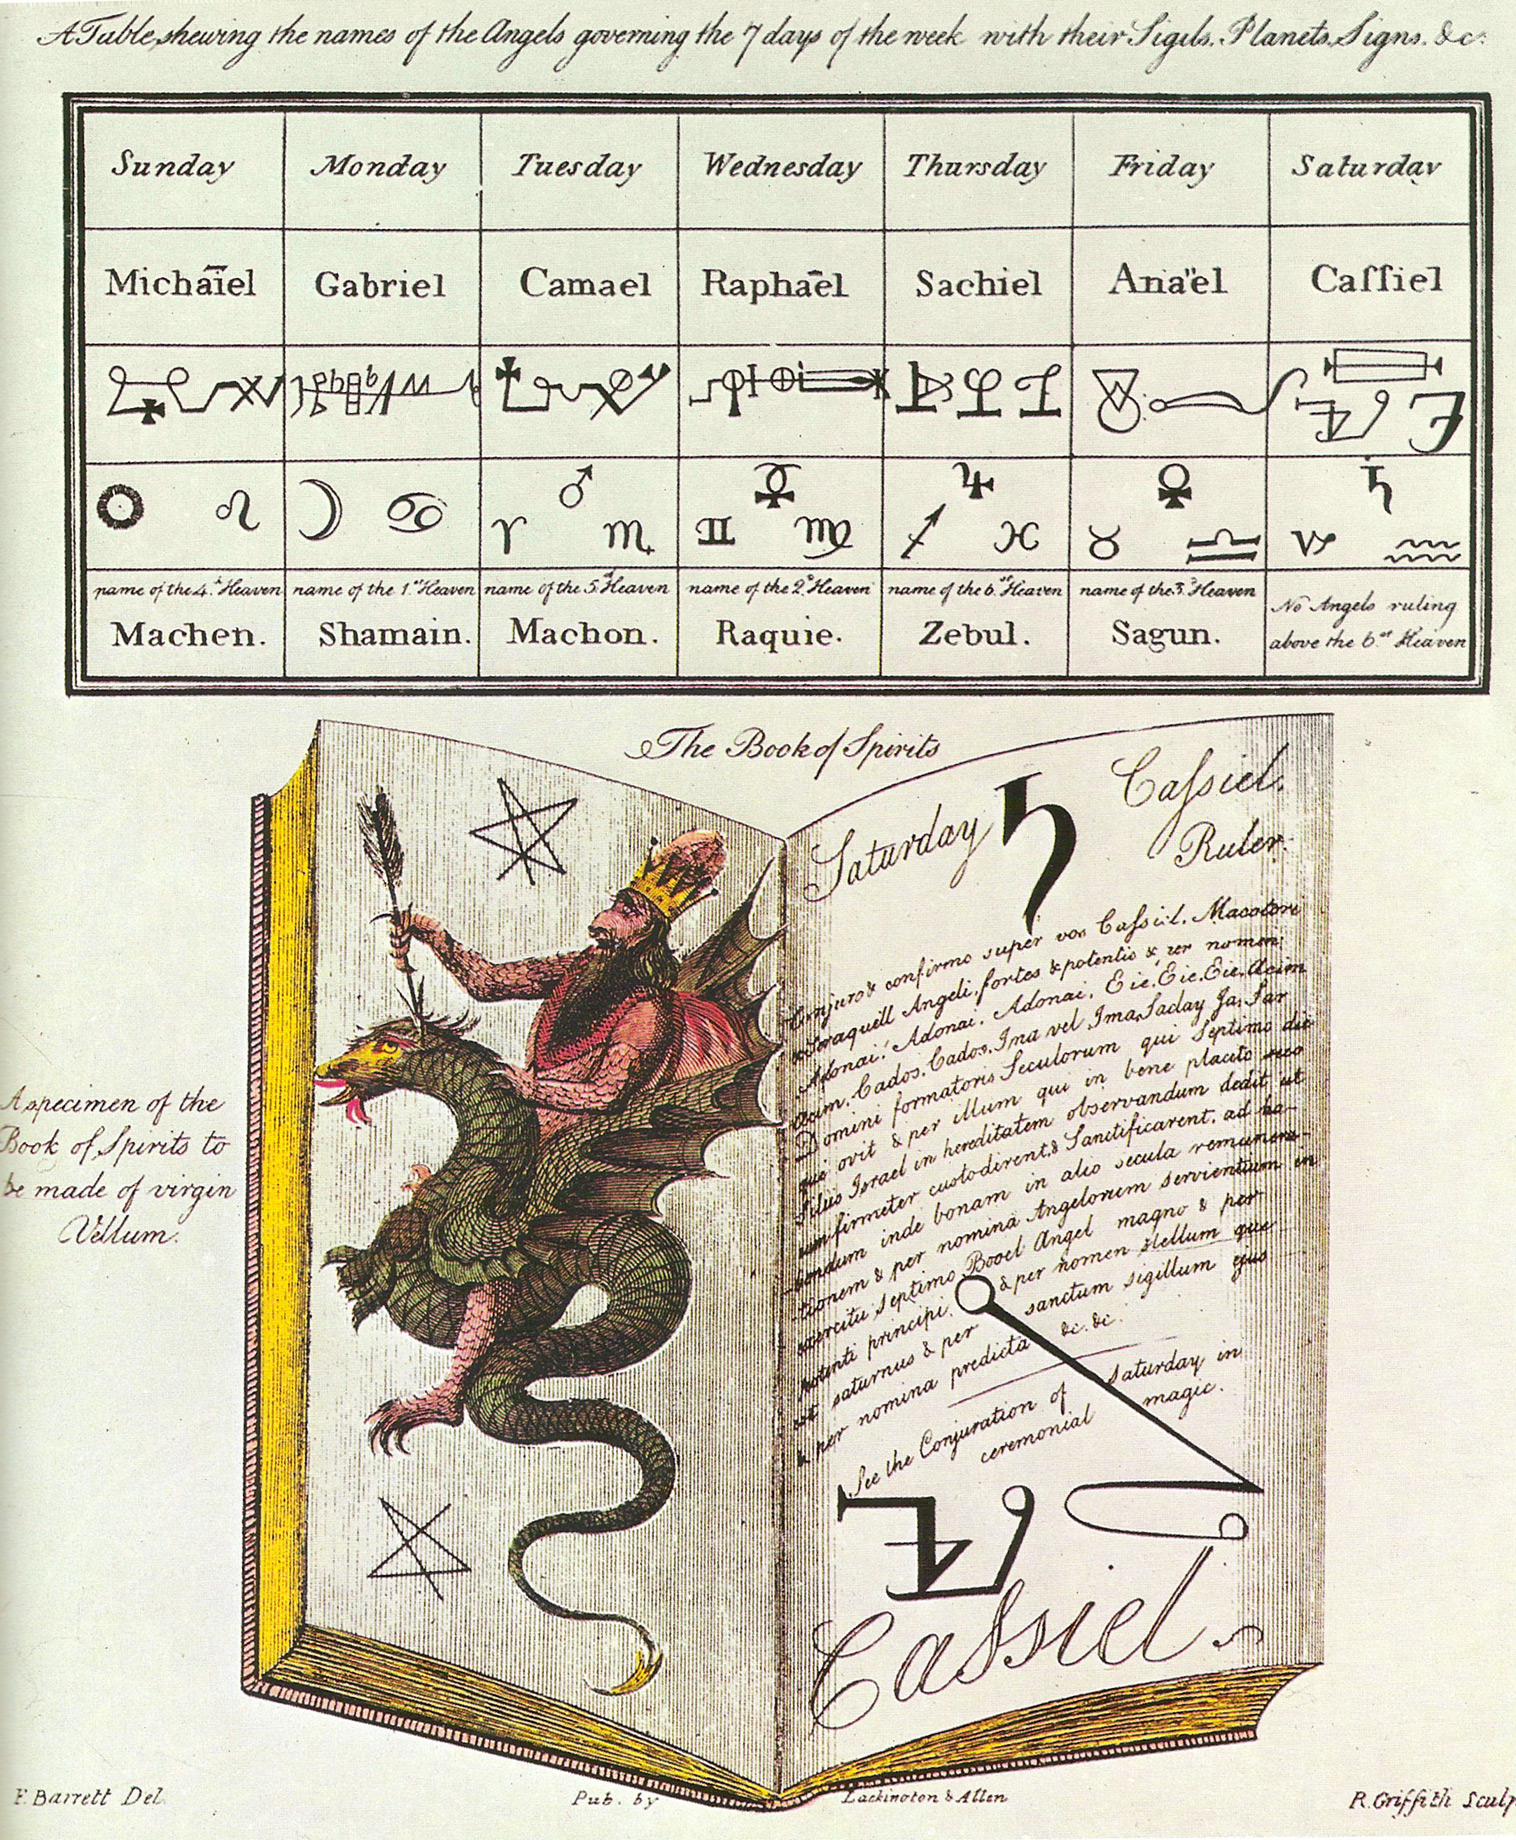 A Table, shewing the names of the Angels governing the 7 days of the week with their Sigils, Planets, Signs, &c.
Sunday Monday Tuesday Wednesday Thursday Friday Saturday
Michaïel Gabriel Camael Raphael Sachiel Anaël Caſſiel
☉ ♌ ☽ ♋ ♂ ♈ ♏ ☿ ♊ ♍ ♃ ♐ ♓ ♀ ♉ ♎ ♄ ♑ ♒
name of the 4.th Heaven name of the 1.st Heaven name of the 5. Heaven name of the 2.d Heaven name of the 6. Heaven name of the 3.d Heaven No Angels ruling
Machen. Shamain. Machon. Raquie. Zebul. Sagun. above the 6. Heaven
The Book of Spirits
Saturday ♄ Caſsiel.
Ruler.
Conjuro & confirmo super vos Caſsiel. Macatori
& Seraquiel Angeli fortes & potentis & per nomen
Adonai. Adonai. Adonai. Eie. Eie. Eie. Acim
Acim. Cados. Cados. Ima vel Ima Saday Ja. Sar
Domini formatoris Seculorum qui Septimo die
que ovit & per illum qui in bene placito suo
filiis Israel in hereditatem observandum dedit ut
eum firmiter custodirent & Sanctificarent. ad ha-
bendum inde bonam in alio secula remunera-
tionem & per nomina Angelorum servientium in
exercitu septimo Booel Angel magno &
potenti principi. & per nomen stellum que
est saturnus & per sanctum sigillum ejus
& per nomina predicta &c. &c.
See the Conjuration of Saturday in
ceremonial magic.
Caſsiel.
A specimen of the
Book of Spirits to
be made of virgin
Vellum.
F. Barrett Del. Pub. by Lackington & Allen R. Griffith Sculp